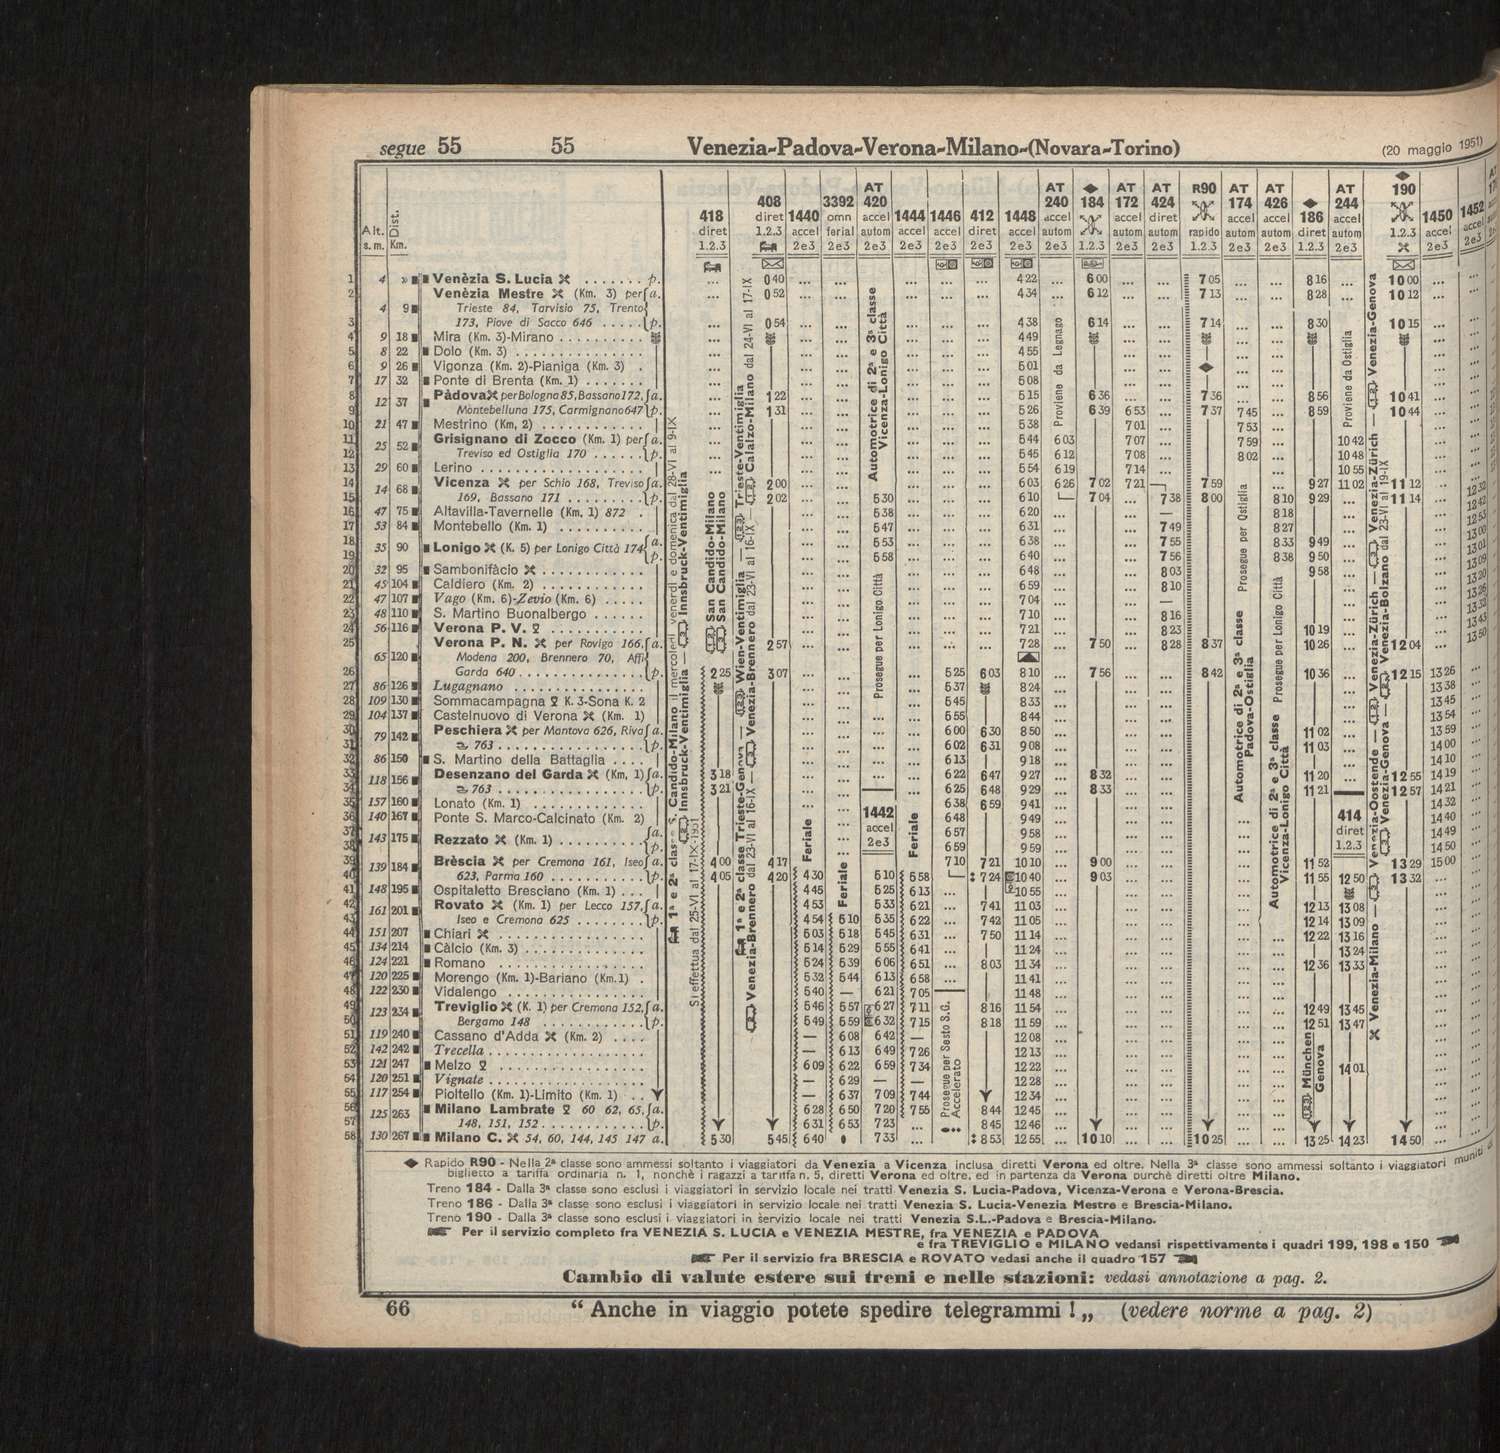 segue 55 55 Venezia-Padova-Verona-Milano-(Novara-Torino) (20 maggio 1951)
Alt. s. m. Dist. Km.
418 diret 1.2.3
408 diret 1.2.3
1440 accel 2e3
3392 omn ferial 2e3
AT 420 accel autom 2e3
1444 accel 2e3
1446 accel 2e3
412 diret 2e3
1448 accel 2e3
AT 240 accel autom 2e3
184 1.2.3
AT 172 accel autom 2e3
AT 424 diret autom 2e3
R90 rapido 1.2.3
AT 174 accel autom 2e3
AT 426 accel autom 2e3
186 diret 1.2.3
AT 244 accel autom 2e3
190 1.2.3
1450 accel 2e3
1452 accel 2e3
1 4 » Venèzia S. Lucia p. ... 0 40 ... ... ... ... ... 4 22 ... 6 00 ... ... 7 05 ... ... 8 16 ... 10 00 ...
2 Venèzia Mestre (Km. 3) per a. ... 0 52 ... ... ... ... ... 4 34 ... 6 12 ... ... 7 13 ... ... 8 28 ... 10 12 ...
4 9 Trieste 84, Tarvisio 75, Trento
3 173, Piove di Sacco 646 p. ... 0 54 ... ... ... ... ... 4 38 6 14 ... ... 7 14 ... ... 8 30 10 15 ...
4 9 18 Mira (Km. 3)-Mirano 4 49
5 8 22 Dolo (Km. 3) 4 55
6 9 26 Vigonza (Km. 2)-Pianiga (Km. 3) 5 01
7 17 32 Ponte di Brenta (Km. 1) 5 08
8 12 37 Pàdova per Bologna 85, Bassano 172, a. 1 22 5 15 6 36 7 36 8 56 10 41
9 Montebelluna 175, Carmignano 647 p. 1 31 5 26 6 39 6 53 7 37 7 45 8 59 10 44
10 21 47 Mestrino (Km, 2) 5 38 7 01 7 53
11 25 52 Grisignano di Zocco (Km. 1) per a. 5 44 6 03 7 07 7 59 10 42
12 Treviso ed Ostiglia 170 p. 5 45 6 12 7 08 8 02 10 48
13 29 60 Lerino 5 54 6 19 7 14 10 55
14 14 68 Vicenza per Schio 168, Treviso a. 2 00 6 03 6 26 7 02 7 21 7 59 9 27 11 02 11 12
15 169, Bassano 171 p. 2 02 5 30 6 10 7 04 7 38 8 00 8 10 9 29 11 14 12 32
16 47 75 Altavilla-Tavernelle (Km. 1) 872 5 38 6 20 — 8 18 12 42
17 53 84 Montebello (Km. 1) 5 47 6 31 7 49 8 27 12 53
18 35 90 Lonigo (K. 5) per Lonigo Città 174 a. 5 53 6 38 7 55 8 33 9 49 13 00
19 p. 5 58 6 40 7 56 8 38 9 50 13 01
20 32 95 Sambonifàcio 6 48 8 03 9 58 13 09
21 45 104 Caldiero (Km. 2) 6 59 8 10 13 20
22 47 107 Vago (Km. 6)-Zevio (Km. 6) 7 04 —
23 48 110 S. Martino Buonalbergo 7 10 8 16
24 56 116 Verona P. V. 7 21 8 23 10 19 13 43
25 65 120 Verona P. N. per Rovigo 166, a. 2 57 7 28 7 50 8 28 8 37 10 26 12 04 13 50
Modena 200, Brennero 70, Affi
26 Garda 640 p. 2 25 3 07 5 25 6 03 8 10 7 56 8 42 10 36 12 15 13 26
27 86 126 Lugagnano 5 37 8 24 13 38
28 109 130 Sommacampagna K. 3-Sona K. 2 5 45 8 33 13 45
29 104 137 Castelnuovo di Verona (Km. 1) 5 55 8 44 13 54
30 79 142 Peschiera per Mantova 626, Riva a. 6 00 6 30 8 50 11 02 13 59
31 763 p. 6 02 6 31 9 08 11 03 14 00
32 86 150 S. Martino della Battaglia 6 13 9 18 14 10
33 118 156 Desenzano del Garda (Km, 1) a. 3 18 6 22 6 47 9 27 8 32 11 20 12 55 14 19
34 763 p. 3 21 6 25 6 48 9 29 8 33 11 21 12 57 14 21
35 157 160 Lonato (Km. 1) 6 38 6 59 9 41 14 32
36 140 167 Ponte S. Marco-Calcinato (Km. 2) 1442 accel 2e3 6 48 9 49 414 diret 1.2.3 14 40
37 143 175 Rezzato (Km. 1) a. 6 57 9 58 14 49
38 p. 6 59 9 59 14 50
39 139 184 Brèscia per Cremona 161, Iseo a. 4 00 4 17 7 10 7 21 10 10 9 00 11 52 13 29 15 00
40 623, Parma 160 p. 4 05 4 20 4 30 5 10 6 58 7 24 10 40 9 03 11 55 12 50 13 32
41 148 195 Ospitaletto Bresciano (Km. 1) 4 45 5 25 6 13 10 55
42 161 201 Rovato (Km. 1) per Lecco 157, a. 4 53 5 33 6 21 7 41 11 03 12 13 13 08
43 Iseo e Cremona 625 p. 4 54 5 10 5 35 6 22 7 42 11 05 12 14 13 09
44 151 207 Chiari 5 03 5 18 5 45 6 31 7 50 11 14 12 22 13 16
45 134 214 Càlcio (Km. 3) 5 14 5 29 5 55 6 41 11 24 13 24
46 124 221 Romano 5 24 5 39 6 06 6 51 8 03 11 34 12 36 13 33
47 120 225 Morengo (Km. 1)-Bariano (Km.1) 5 32 5 44 6 13 6 58 11 41
48 122 230 Vidalengo 5 40 — 6 21 7 05 11 48
49 123 234 Treviglio (K. 1) per Cremona 152, a. 5 46 5 57 6 27 7 11 8 16 11 54 12 49 13 45
50 Bergamo 148 p. 5 49 5 59 6 32 7 15 8 18 11 59 12 51 13 47
51 119 240 Cassano d'Adda (Km. 2) — 6 08 6 42 — 12 08
52 142 242 Trecella — 6 13 6 49 7 26 12 13
53 121 247 Melzo 6 09 6 22 6 59 7 34 12 22 14 01
54 120 251 Vignate — 6 29 — — 12 28
55 117 254 Pioltello (Km. 1)-Limito (Km. 1) — 6 37 7 09 7 44 12 34
56 125 263 Milano Lambrate 60 62, 65, a. 6 28 6 50 7 20 7 55 8 44 12 45
57 148, 151, 152 p. 6 31 6 53 7 23 8 45 12 46
58 130 267 Milano C. 54, 60, 144, 145 147 a. 5 30 5 45 6 40 7 33 8 53 12 55 10 10 10 25 13 25 14 23 14 50
Si effettua dal 25-VI al 17-IX-1951
Innsbruck-Ventimiglia
San Candido-Milano
San Candido-Milano
Feriale
Feriale
Feriale
Automotrice di 2ª e 3ª classe
Vicenza-Lonigo Città
Prosegue per Lonigo Città
Prosegue per Sesto S.G.
Accelerato
Proviene da Legnago
Prosegue per Ostiglia
Automotrice di 2ª e 3ª classe
Padova-Ostiglia
Prosegue per Lonigo Città
Automotrice di 2ª e 3ª classe
Vicenza-Lonigo Città
München
Genova
Proviene da Ostiglia
Venezia-Milano
Rapido R90 - Nella 2ª classe sono ammessi soltanto i viaggiatori da Venezia a Vicenza inclusa diretti Verona ed oltre. Nella 3ª classe sono ammessi soltanto i viaggiatori muniti di
biglietto a tariffa ordinaria n. 1, nonchè i ragazzi a tariffa n. 5, diretti Verona ed oltre, ed in partenza da Verona purchè diretti oltre Milano.
Treno 184 - Dalla 3ª classe sono esclusi i viaggiatori in servizio locale nei tratti Venezia S. Lucia-Padova, Vicenza-Verona e Verona-Brescia.
Treno 186 - Dalla 3ª classe sono esclusi i viaggiatori in servizio locale nei tratti Venezia S. Lucia-Venezia Mestre e Brescia-Milano.
Treno 190 - Dalla 3ª classe sono esclusi i viaggiatori in servizio locale nei tratti Venezia S.L.-Padova e Brescia-Milano.
Per il servizio completo fra VENEZIA S. LUCIA e VENEZIA MESTRE, fra VENEZIA e PADOVA
e fra TREVIGLIO e MILANO vedansi rispettivamente i quadri 199, 198 e 150
Per il servizio fra BRESCIA e ROVATO vedasi anche il quadro 157
Cambio di valute estere sui treni e nelle stazioni: vedasi annotazione a pag. 2.
66 “ Anche in viaggio potete spedire telegrammi ! „ (vedere norme a pag. 2)